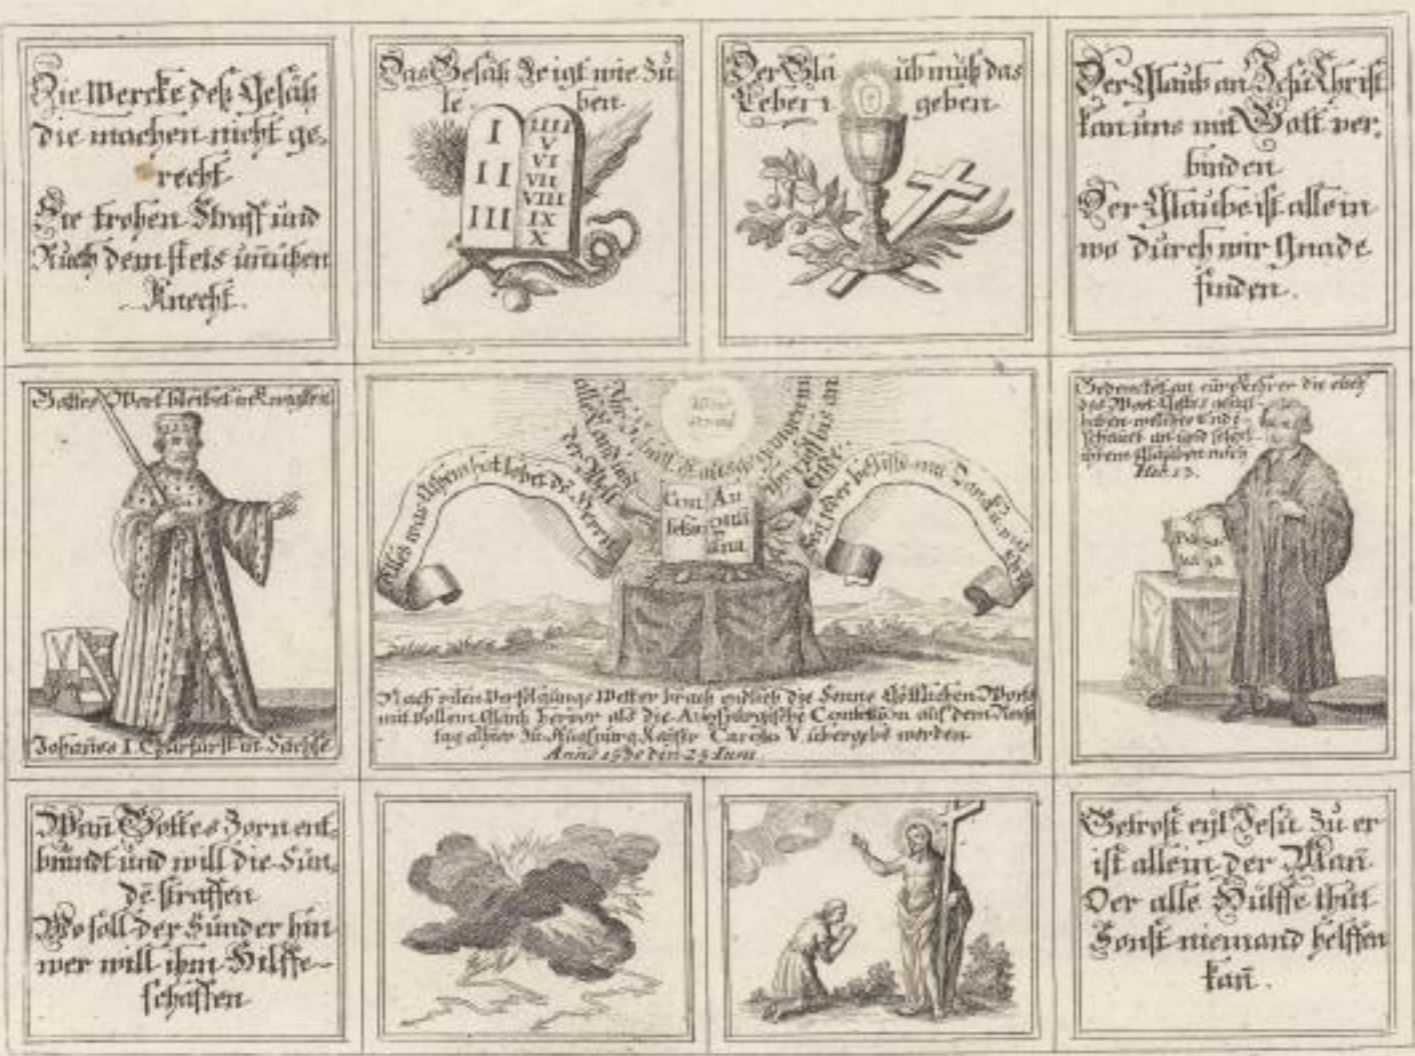 Die Wercke deß Gesätz
die machen nicht ge,
recht
Sie trohen Straff und
Fluch dem stets unnützen
Knecht.
Das Gesätz Zeigt wie Zu
le ben
I
II
III
IIII
V
VI
VII
VIII
IX
X
Der Gla ub muß das
Leben geben
Der Glaub an Jesu Christ
kan uns mit Gott ver,
binden
Der Glaube ist allein
wo durch wir Gnade
finden.
Gottes Wort bleibet in Ewigkeit
Johanes I. Churfürst in Sachse
Alles was Athem hat lobet de Herrn
Ihr Schall ist ausgegangen in
alle Land und
der Welt
Con Au
fessio gusta
na
Nach vilen Verfolgungs Wetter brach endlich die Sonne Göttlichen Worts
mit vollem Glantz hervor als die Augspurgische Confession auf dem Reichs
tag alhier Zu Augspurg Kayser Carolo V. übergebe worden
Anno 1530 den 25 Juni.
Gedencket an eür Lehrer die euch
das Wort Gottes gesagt
haben welches Ende
schauet an und folget
ihrem Glauben nach
Heb. 13.
Wañ Gottes Zorn ent,
bründt und will die Sün,
dē straffen
Wo soll der Sünder hin
wer will ihm Hilffe
schaffen
Getrost eyl Jesu Zu er
ist allein der Mañ
Der alle Hülffe thut
Sonst niemand helffen
kañ.